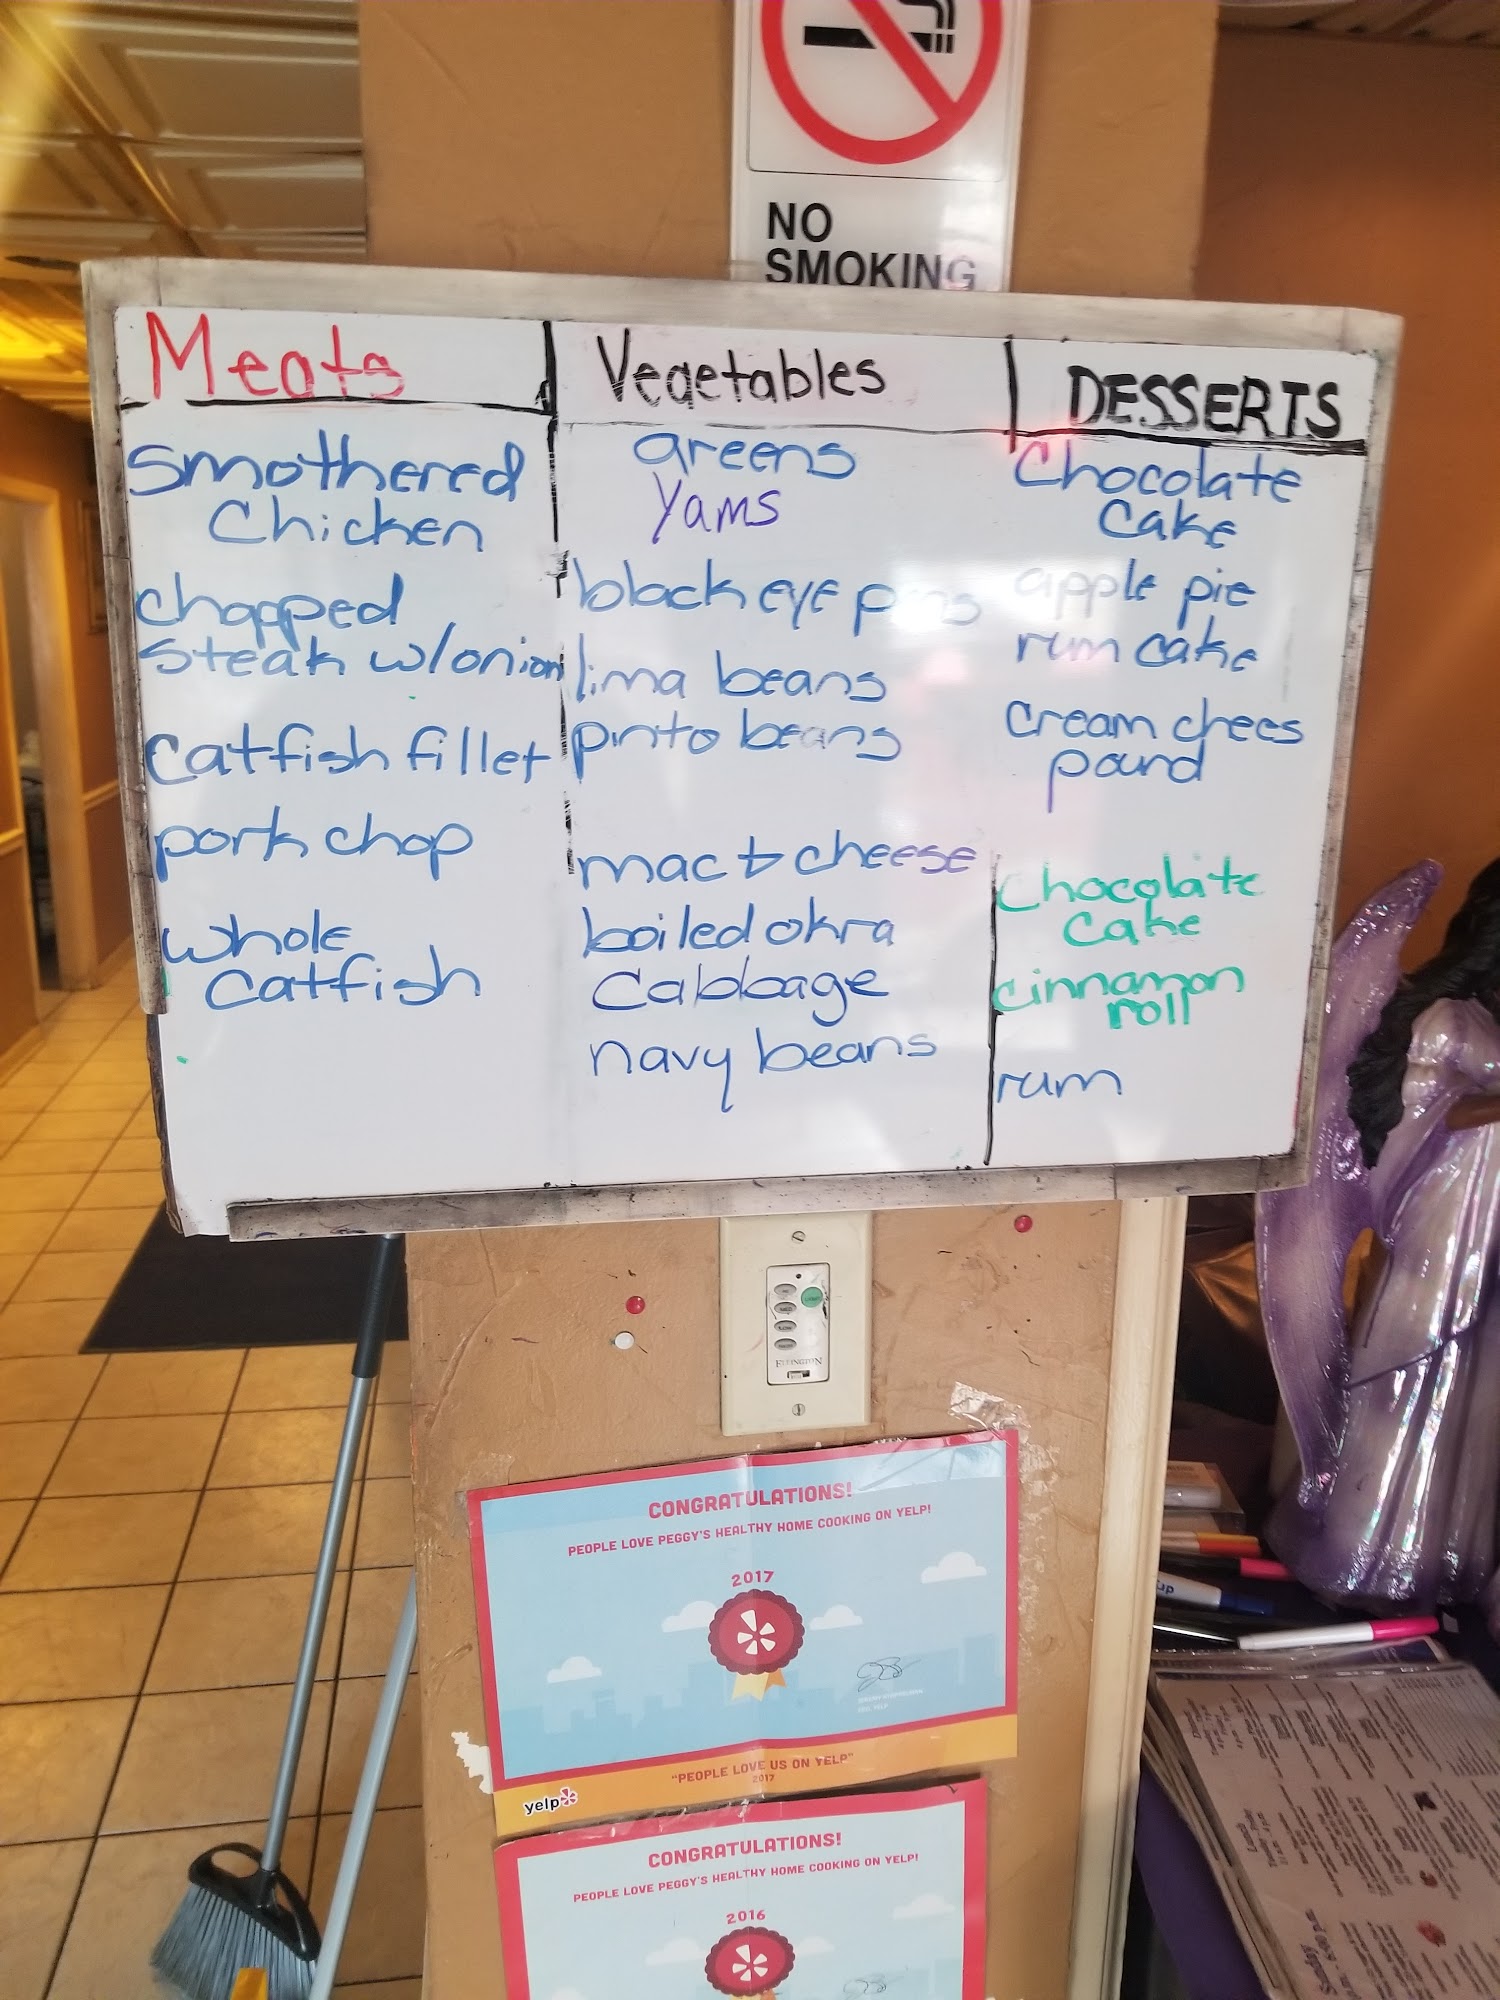 NO
SMOKING
Meats
Smothered
Chicken
chopped
steak w/onion
catfish fillet
pork chop
whole
catfish
Vegetables
greens
Yams
black eye peas
lima beans
pinto beans
mac & cheese
boiled okra
Cabbage
navy beans
DESSERTS
Chocolate
cake
apple pie
rum cake
cream chees
pound
Chocolate
cake
cinnamon
roll
rum
ELLINGTON
CONGRATULATIONS!
PEOPLE LOVE PEGGY'S HEALTHY HOME COOKING ON YELP!
2017
"PEOPLE LOVE US ON YELP"
2017
yelp
CONGRATULATIONS!
PEOPLE LOVE PEGGY'S HEALTHY HOME COOKING ON YELP!
2016
Sunday